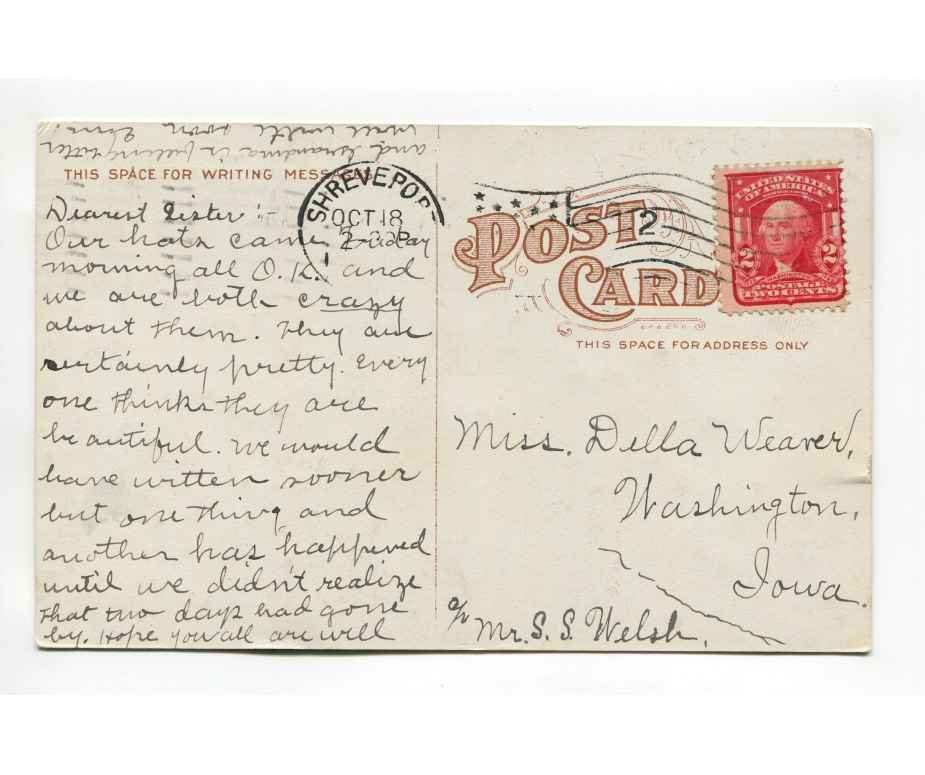 THIS SPACE FOR WRITING MESSAGES
Dearest Sister:-
Our hats came
morning all O.K. and
we are both crazy
about them. They are
certainly pretty. Every
one thinks they are
beautiful. We would
have witten sooner
but one thing and
another has happened
until we didn't realize
that two days had gone
by. Hope you all are well
and Grandma is feeling better
will write soon
SHREVEPOR
OCT 18
2
POST
CARD
UNITED STATES
OF AMERICA
2 2
POSTAGE
TWO CENTS
THIS SPACE FOR ADDRESS ONLY
Miss. Della Weaver,
Washington,
Iowa.
c/o Mr. S. S. Welsh.